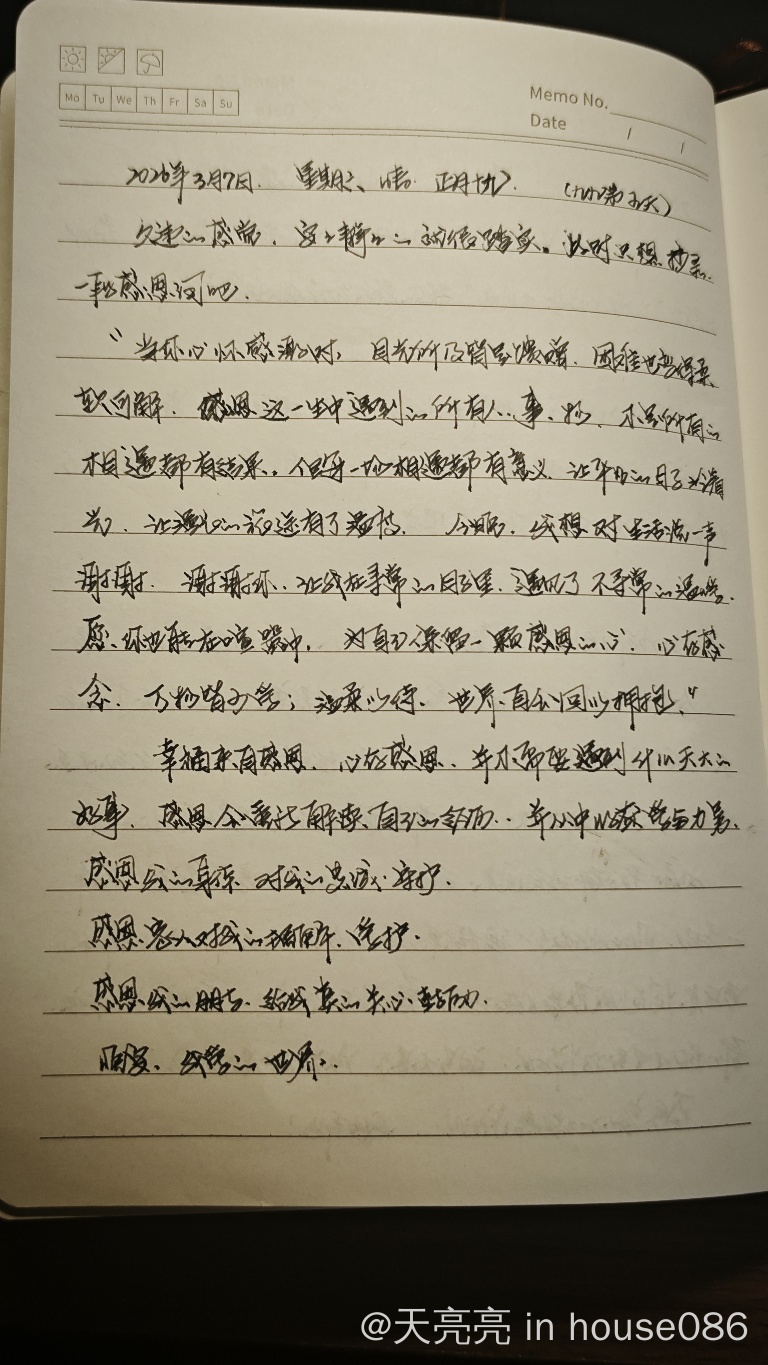 Mo Tu We Th Fr Sa Su
Memo No.
Date / /
2026年3月7日. 星期六、晴. 正月十九.
久违的感觉. 安安静静的 踏实。此时只想抄录
一段感恩词吧.
“当你心怀感激时, 目光所及皆是馈赠. 困难也变得柔
软可解. 感恩这一生中遇到的所有人、事、物. 不是所有的
相遇都有结果. 但每一次相遇都有意义. 让平凡的日子
光. 让 的 有了温情. 今晚. 我想对生活说一声
谢谢. 谢谢你. 让我在寻常的日子里. 遇见了不寻常的温暖.
愿你也能在喧嚣中, 为自己保留一颗感恩的心. 心存感
念. 万物皆可喜; 温柔以待. 世界自会回以拥抱.”
幸福来自感恩. 心存感恩. 并不需要遇到什么天大的
好事. 感恩会重新解读自己的 . 并从中收获 力量.
感恩我的身体 对我的 守护.
感恩家人对我的理解、爱护.
感恩我的朋友. 给我 的关心、 .
晚安. 我 的世界.
@天亮亮 in house086